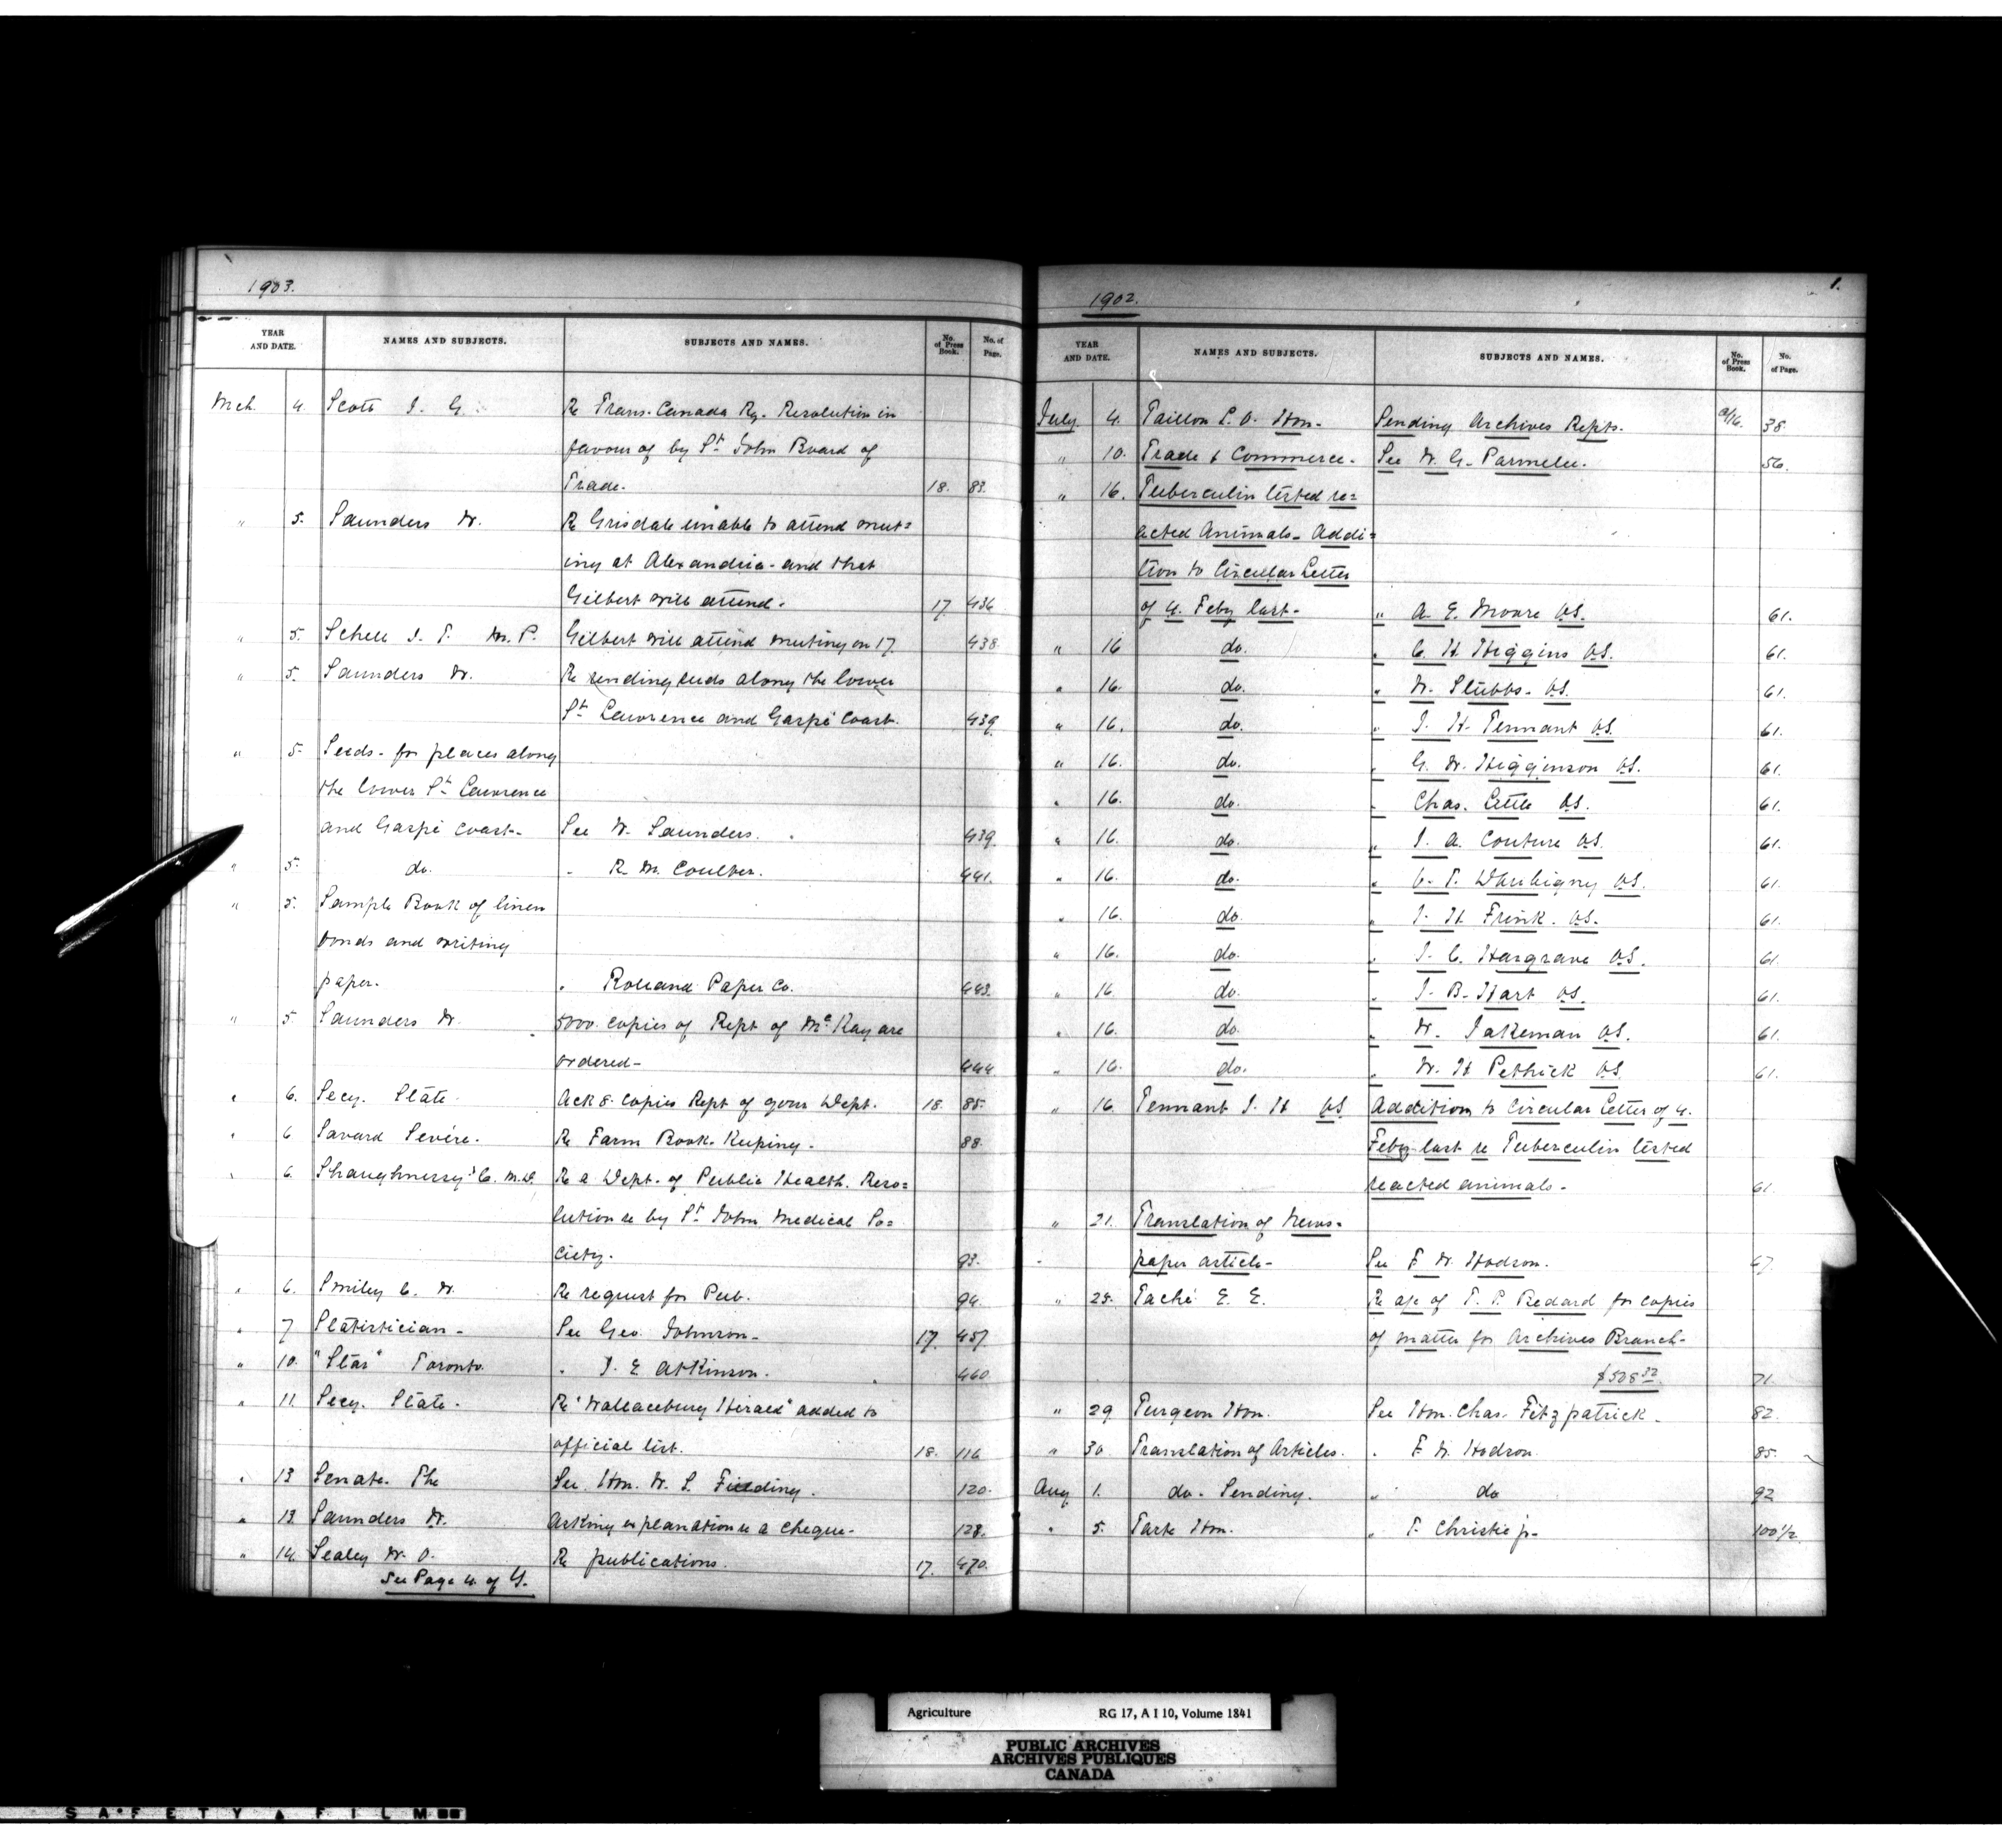 1903.
YEAR AND DATE. NAMES AND SUBJECTS. SUBJECTS AND NAMES. No. of Press Book. No. of Page.
Mch. 4. Scott J. G. Re Trans. Canada Ry. Resolution in
favour of by St. John Board of
Trade. 18. 83.
" 5. Saunders W. Re Grisdale unable to attend meet=
ing at Alexandria - and that
Gilbert will attend. 17 436
" 5. Schell J. T. M.P. Gilbert will attend meeting on 17. 438
" 5. Saunders W. Re sending seeds along the lower
St. Lawrence and Gaspé Coast. 439
" 5. Seeds - for places along
the lower St. Lawrence
and Gaspé Coast. See W. Saunders. 439
" 5. do. " R. M. Coulter. 441.
" 5. Sample Book of linen
bonds and writing
paper. " Rolland Paper Co. 443.
" 5. Saunders W. 5000 copies of Rept of McKay are
ordered - 444
" 6. Secy. State. Ack 8. copies Rept of your Dept. 18. 85.
" 6 Savard Sevére. Re Farm Book-Keeping. 88.
" 6. Shaughnessy C. M.D. Re a Dept. of Public Health. Reso=
lution re by St. John Medical So=
ciety. 93.
" 6. Smiley C. W. Re request for Pub. 94.
" 7 Statistician - See Geo. Johnson - 17. 457
" 10. "Star" Toronto. " J. E. Atkinson. 460
" 11. Secy. State. Re "Wallaceburg Herald" added to
official list. 18. 116
" 13 Senate. The See Hon. W. S. Fielding. 120.
" 13 Saunders W. Asking explanation re a cheque - 128.
" 14. Sealey W. O. Re publications. 17. 470.
See Page 4. of Y.
1.
1902.
YEAR AND DATE. NAMES AND SUBJECTS. SUBJECTS AND NAMES. No. of Press Book. No. of Page.
July 4. Taillon L. O. Hon. Sending Archives Repts. 38.
" 10. Trade & Commerce. See W. G. Parmelee. 56.
" 16. Tuberculin tested re=
acted Animals - Addi=
tion to Circular Letter
of 4. Feby last - " A. E. Moore VS. 61.
" 16 do. " C. H. Higgins VS. 61.
" 16. do. " W. Stubbs. VS. 61.
" 16. do. " J. H. Tennant VS. 61.
" 16. do. " G. W. Higginson VS. 61.
" 16. do. " Chas. Little VS. 61.
" 16. do. " J. A. Couture VS. 61.
" 16. do. " V. T. Daubigny VS. 61.
" 16. do. " J. H. Frink. VS. 61.
" 16. do. " J. C. Hargrave VS. 61.
" 16 do. " J. B. Hart VS. 61.
" 16. do. " W. Jakeman VS. 61.
" 16. do. " W. H. Pethick VS. 61.
" 16. Tennant J. H. VS Addition to Circular Letter of 4.
Feby last re Tuberculin tested
reacted animals - 61
" 21. Translation of News-
paper article - See F. W. Hodson. 67.
" 25. Taché E. E. Re a/c of T. P. Bedard for copies
of matter for Archives Branch -
71.
" 29 Turgeon Hon. See Hon. Chas. Fitzpatrick. 82.
" 30 Translation of Articles. " F. W. Hodson. 85.
Aug 1. do. Sending. " do 92
" 5. Tarte Hon. " T. Christie jr. 100½
Agriculture RG 17, A I 10, Volume 1841
PUBLIC ARCHIVES
ARCHIVES PUBLIQUES
CANADA
SAFETY FILM